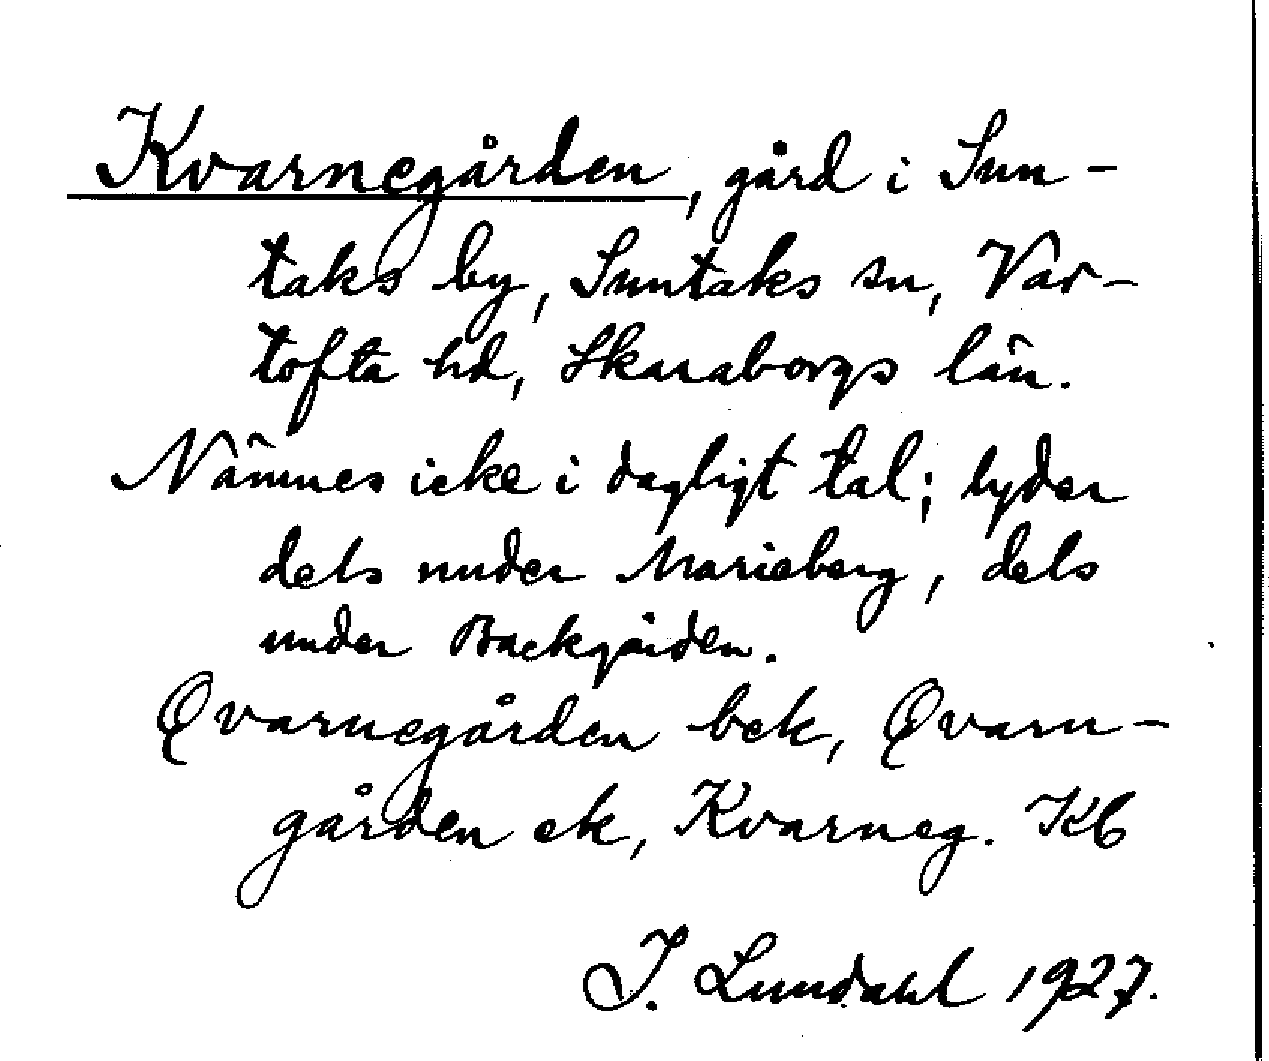 Kvarnegården, gård i Sun-
taks by, Suntaks sn, Var-
tofta hd, Skaraborgs län.
Nämnes icke i dagligt tal; lyder
dels under Marieberg, dels
under Backgården.
Qvarnegården bek, Qvarn-
gården ek, Kvarneg. Kb
I. Lundahl 1927.